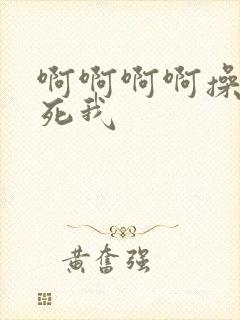 啊啊啊啊操
死我
黄奋强